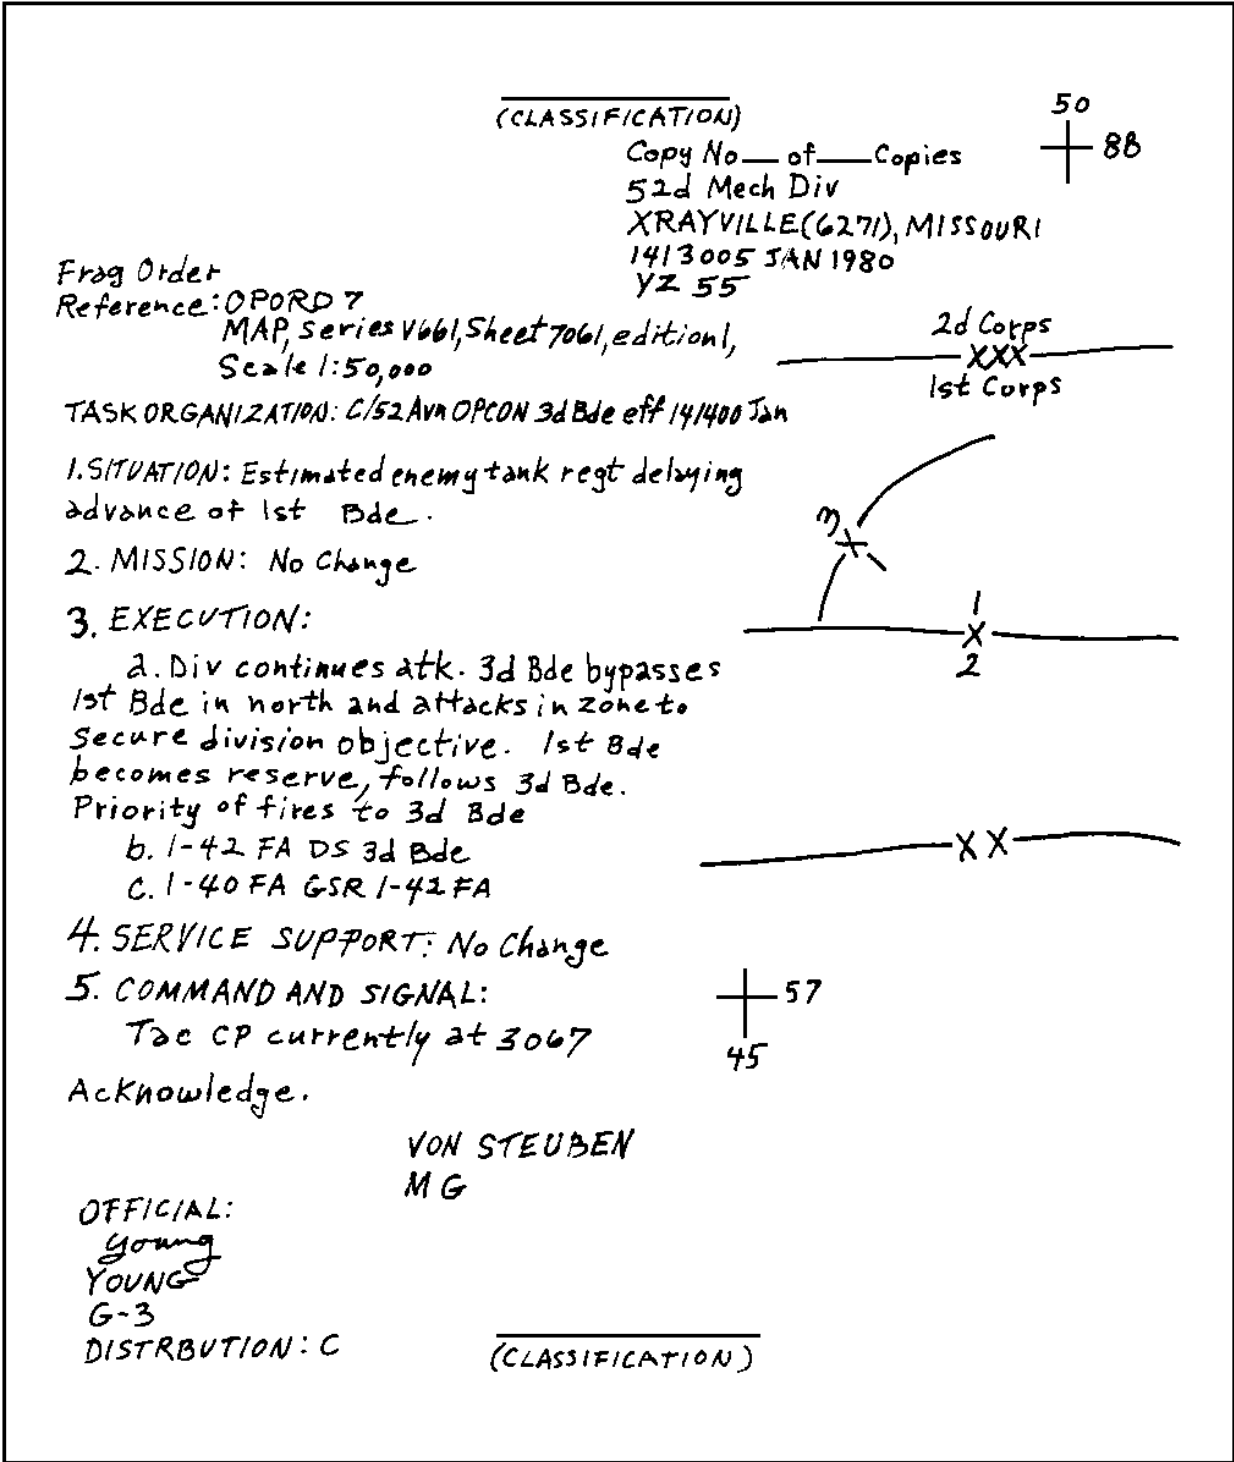 (CLASSIFICATION)
50
88
Copy No__ of__ Copies
52d Mech Div
XRAYVILLE(6271), MISSOURI
1413005 JAN 1980
YZ 55
Frag Order
Reference: OPORD 7
MAP, series V661, Sheet 7061, edition 1,
Scale 1:50,000
TASK ORGANIZATION: C/52 Avn OPCON 3d Bde eff 141400 Jan
1. SITUATION: Estimated enemy tank regt delaying
advance of 1st Bde.
2. MISSION: No Change
3. EXECUTION:
a. Div continues atk. 3d Bde bypasses
1st Bde in north and attacks in zone to
Secure division objective. 1st Bde
becomes reserve, follows 3d Bde.
Priority of fires to 3d Bde
b. 1-42 FA DS 3d Bde
C. 1-40 FA GSR 1-42 FA
4. SERVICE SUPPORT: No Change
5. COMMAND AND SIGNAL:
Tac CP currently at 3067
Acknowledge.
VON STEUBEN
MG
OFFICIAL:
Young
YOUNG
G-3
DISTRBUTION: C
(CLASSIFICATION)
2d Corps
XXX
1st Corps
3
X
1
X
2
XX
57
45